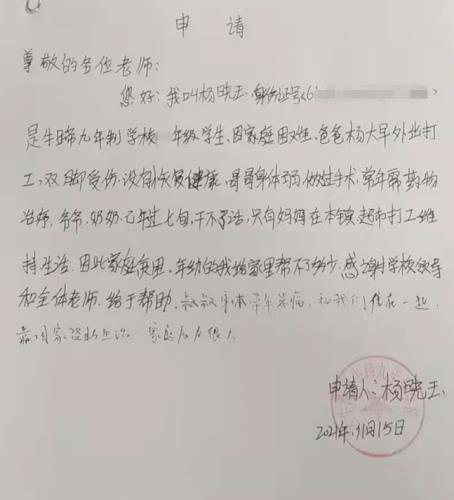 申 请
尊敬的各位老师：
您好：我叫杨映玉，身份证号(6 )
是牛蹄九年制学校 年级学生，因家庭困难，爸爸杨大早外出打
工，双脚受伤，没有恢复健康，哥哥身体弱，做过手术，常年需药物
治疗，爷爷、奶奶已年过七旬，干不了活，只有妈妈在本镇超市打工维
持生活，因此家庭贫困，年幼的我给家里帮不了多少，感谢学校领导
和全体老师，给于帮助，叔叔 常年 病，和我们住在一起，
靠国家 生活，家庭压力很大
申请人：杨映玉
2021年11月15日